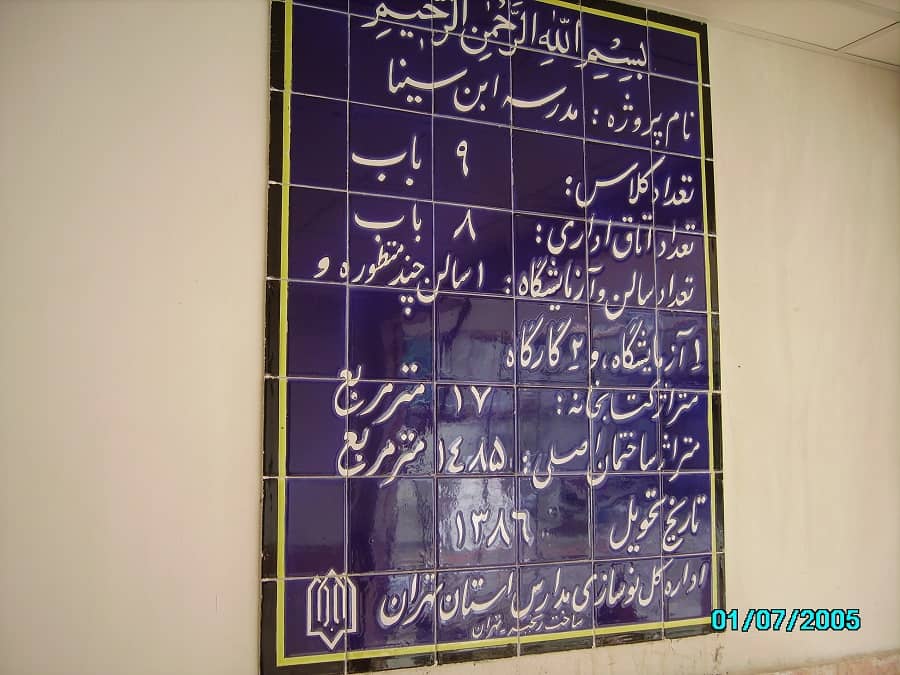 بسم الله الرحمن الرحیم
نام پروژه : مدرسه ابن سینا
تعداد کلاس : ۹ باب
تعداد اتاق اداری : ۸ باب
تعداد سالن و آزمایشگاه : ۱ سالن چند منظوره و
۱ آزمایشگاه ، و ۲ کارگاه
متراژ کتابخانه : ۱۷ متر مربع
متراژ ساختمان اصلی : ۱۴۸۵ متر مربع
تاریخ تحویل ۱۳۸۶
اداره کل نوسازی مدارس استان تهران
01/07/2005